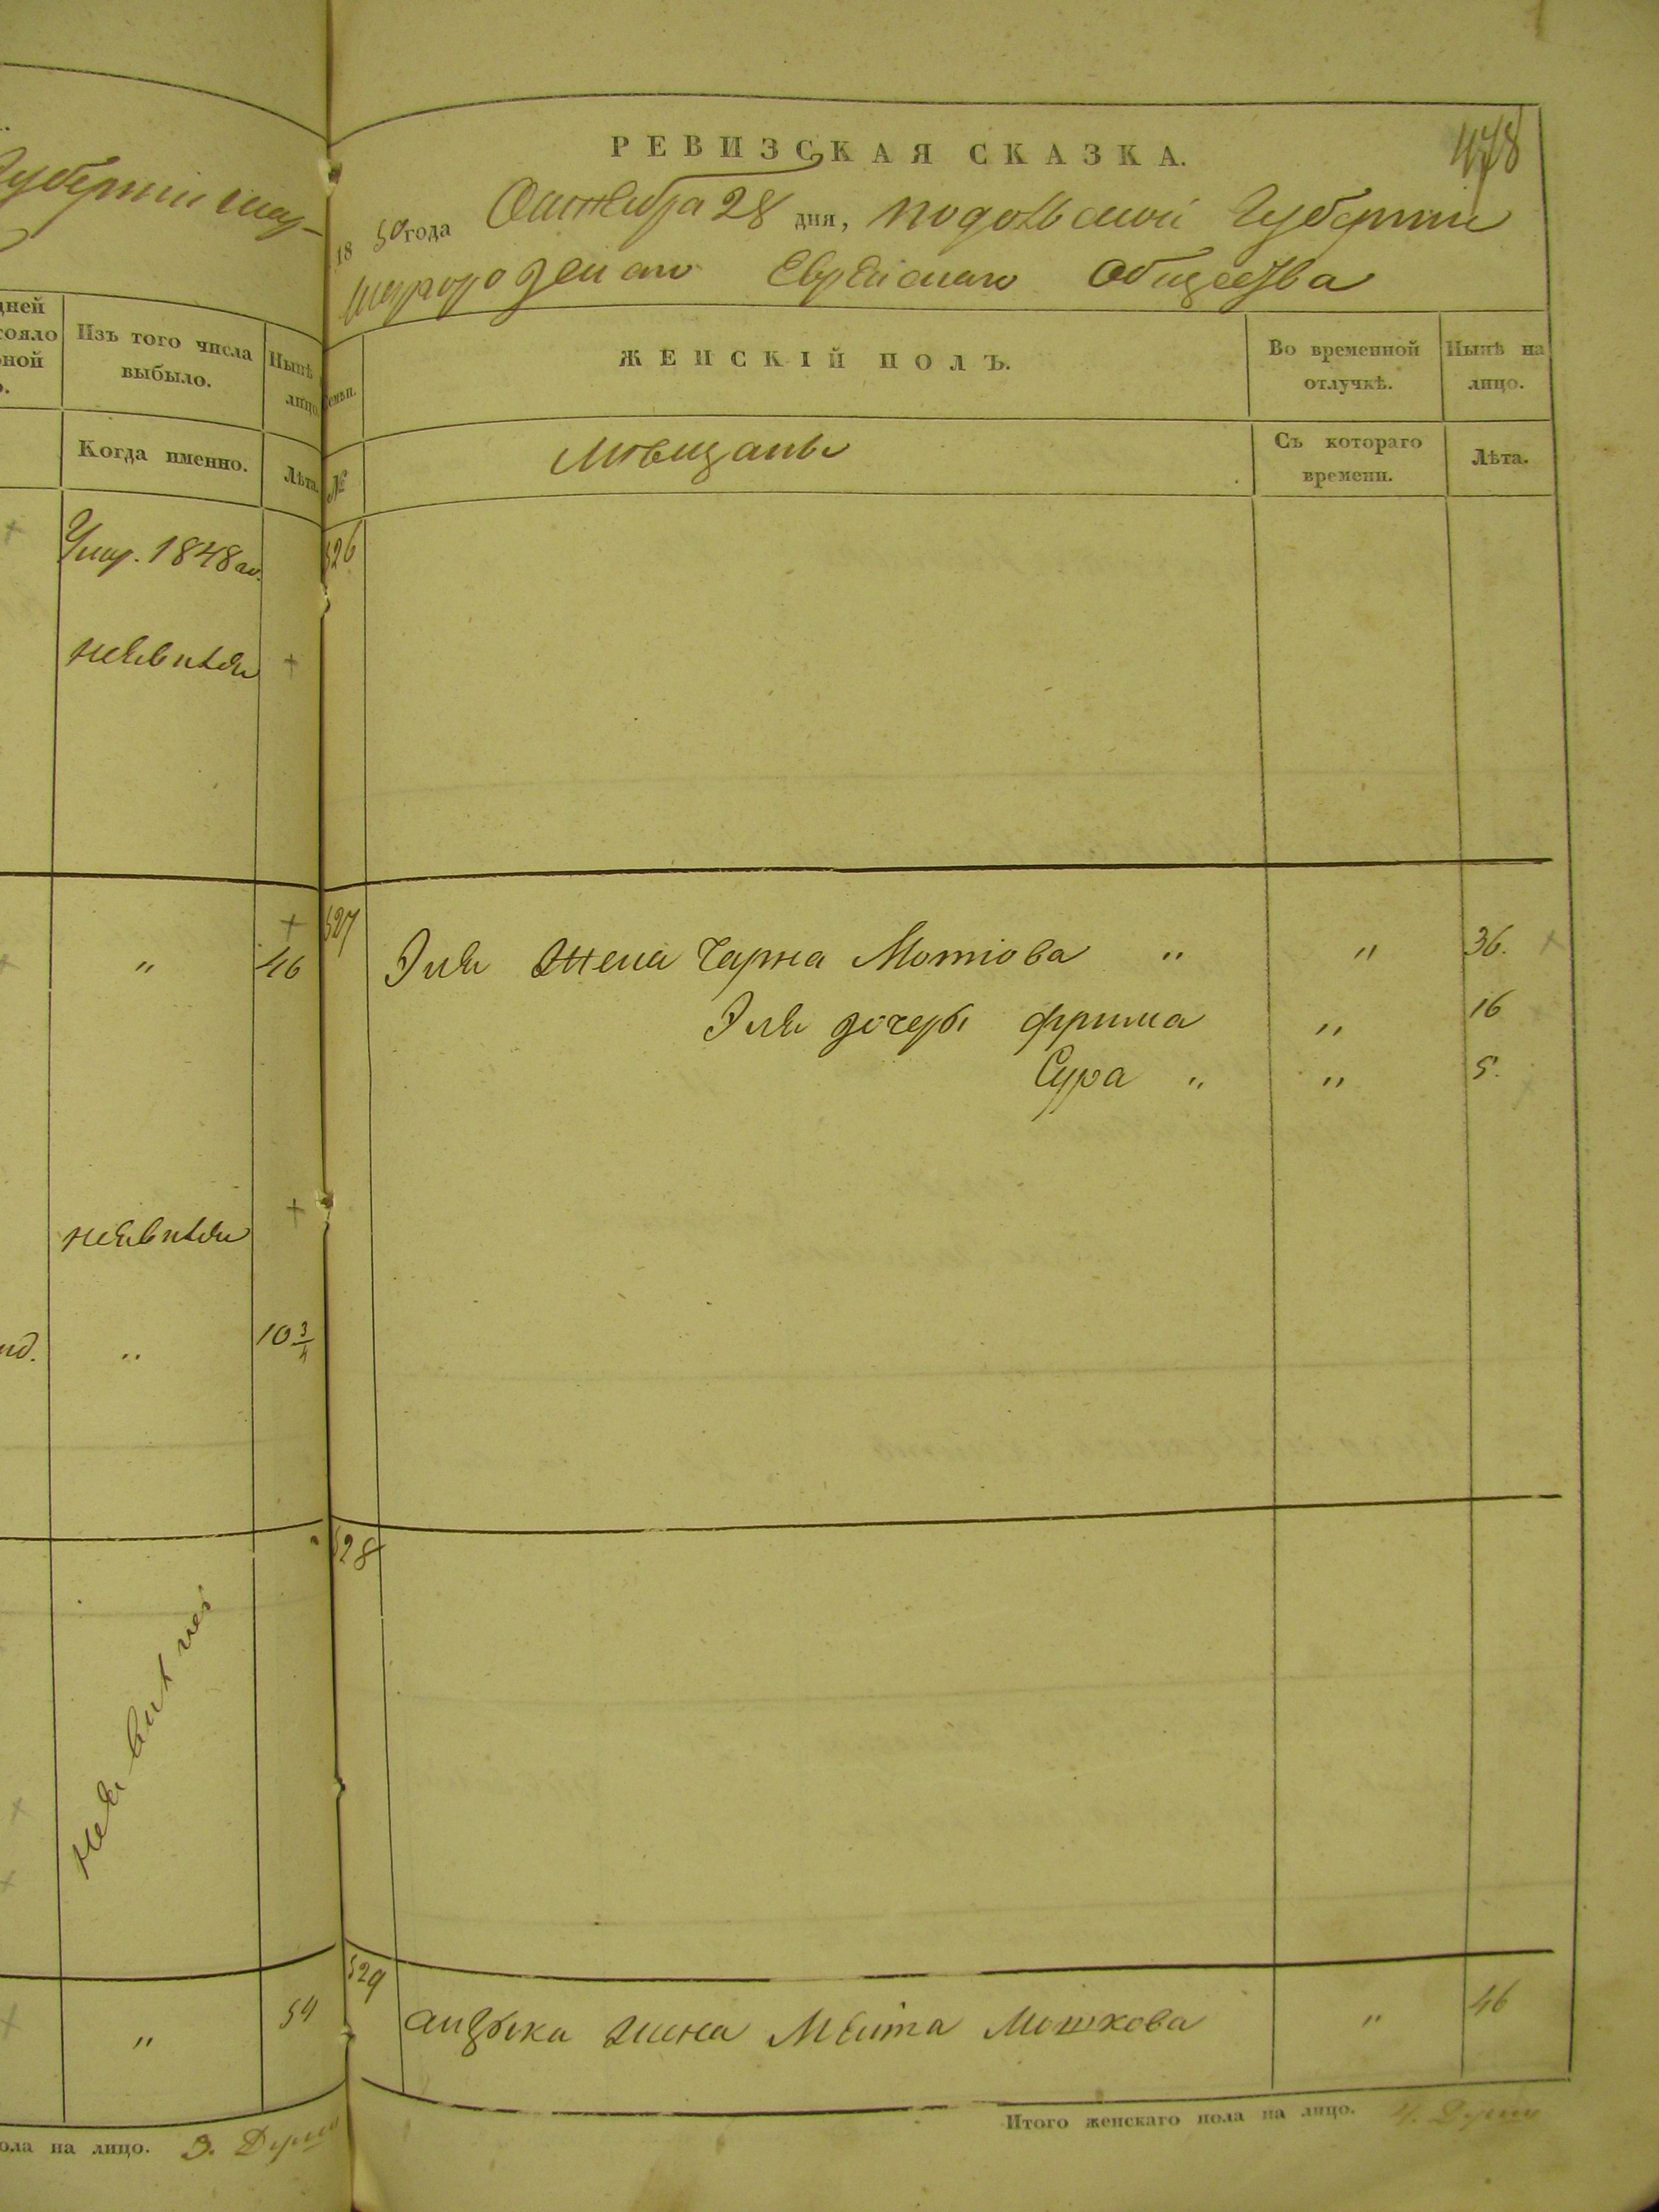 Губерніи шар-
дней
тояло
ной
Изъ того числа
выбыло.
Нынѣ
лицо.
Когда именно.
Лѣта.
Умер. 1848го.
неявился
"
46
неявился
"
10 3/4
неявились
"
54
пола на лицо. 3. Души
РЕВИЗСКАЯ СКАЗКА.
478
1850 года Октября 28 дня, Подольской Губерніи
Шаргородскаго Еврейскаго Общества
Семьи.
ЖЕНСКІЙ ПОЛЪ.
Во временной
отлучкѣ.
Нынѣ на
лицо.
№
Мѣщаны
Съ котораго
времени.
Лѣта.
526
527
Эля жена Чарна Мотіова " " 36.
Эля дочеры Фрима " 16
Сура " " 5.
528
529
Аицыка жена Меита Мошкова " 46
Итого женскаго пола на лицо. 4. Души